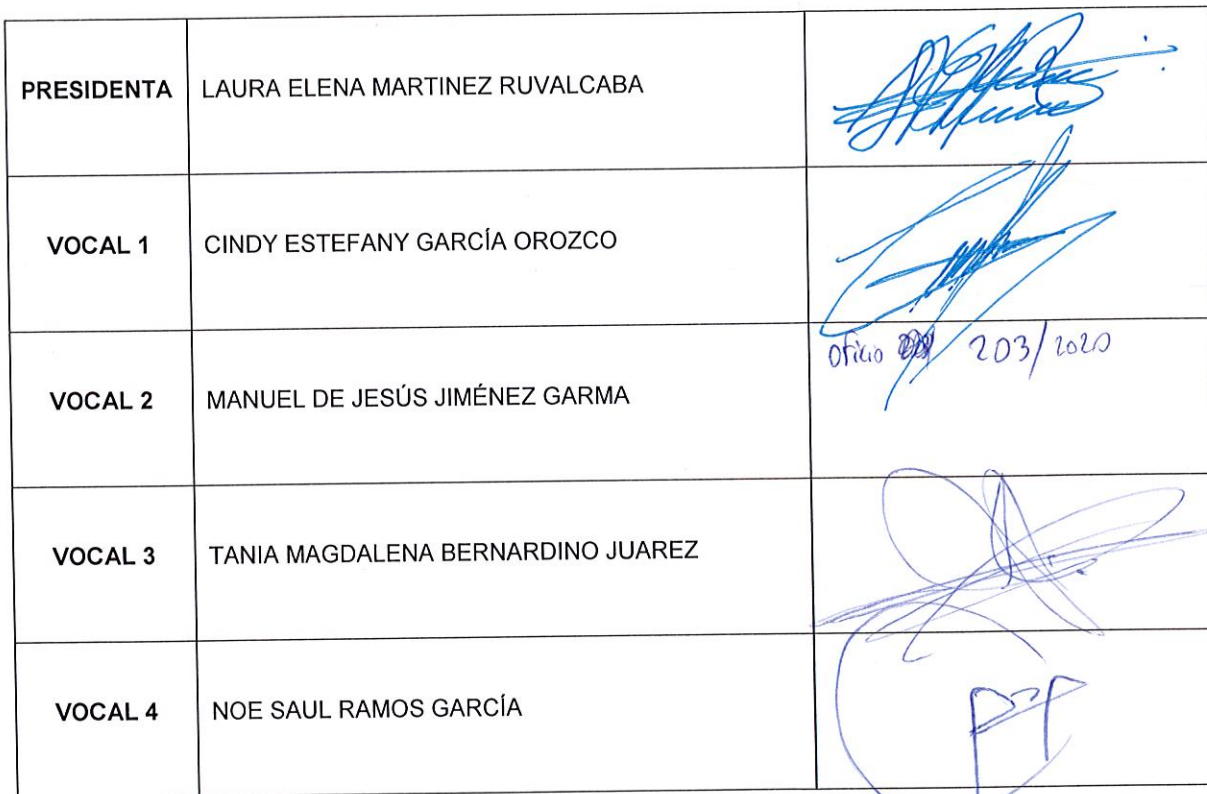 PRESIDENTA LAURA ELENA MARTINEZ RUVALCABA
VOCAL 1 CINDY ESTEFANY GARCÍA OROZCO
Oficio 203/2020
VOCAL 2 MANUEL DE JESÚS JIMÉNEZ GARMA
VOCAL 3 TANIA MAGDALENA BERNARDINO JUAREZ
VOCAL 4 NOE SAUL RAMOS GARCÍA